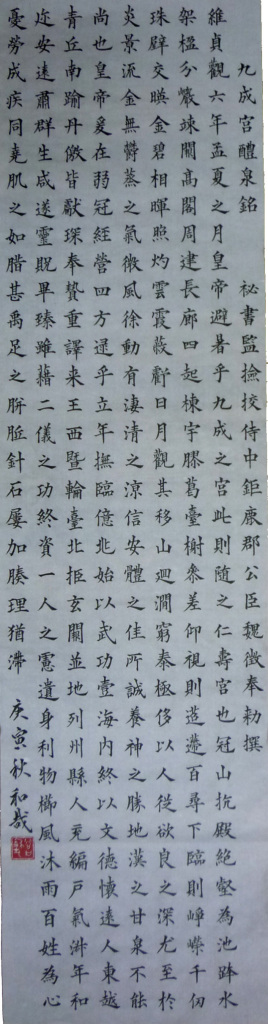 九成宮醴泉銘 祕書監撿挍侍中鉅鹿郡公臣魏徵奉勅撰
維貞觀六年孟夏之月皇帝避暑乎九成之宮此則隨之仁壽宮也冠山抗殿絕壑為池跨水
架楹分巖竦闕高閣周建長廊四起棟宇膠葛臺榭參差仰視則迢遰百尋下臨則崢嶸千仞
珠璧交暎金碧相暉照灼雲霞蔽虧日月觀其移山迴澗窮泰極侈以人從欲良之深尤至於
炎景流金無鬱蒸之氣微風徐動有淒清之涼信安體之佳所誠養神之勝地漢之甘泉不能
尚也皇帝爰在弱冠經營四方逮乎立年撫臨億兆始以武功壹海內終以文德懷遠人東越
青丘南踰丹儌皆獻琛奉贄重譯来王西暨輪臺北拒玄闕並地列州縣人充編戶氣淑年和
迩安遠肅群生咸遂靈貺畢臻雖藉二儀之功終資一人之慮遺身利物櫛風沐雨百姓為心
憂勞成疾同堯肌之如腊甚禹足之胼胝針石屢加腠理猶滯
庚寅秋和哉